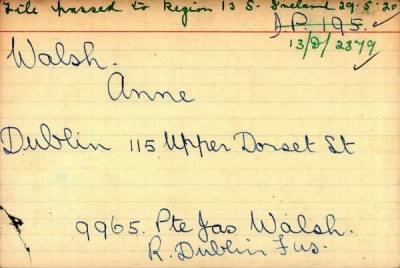 File passed to Region 13 S. Ireland 29.5.20
D.P. 195.
13/D/2379
Walsh.
Anne
Dublin 115 Upper Dorset St
9965. Pte Jas Walsh.
R. Dublin Fus.